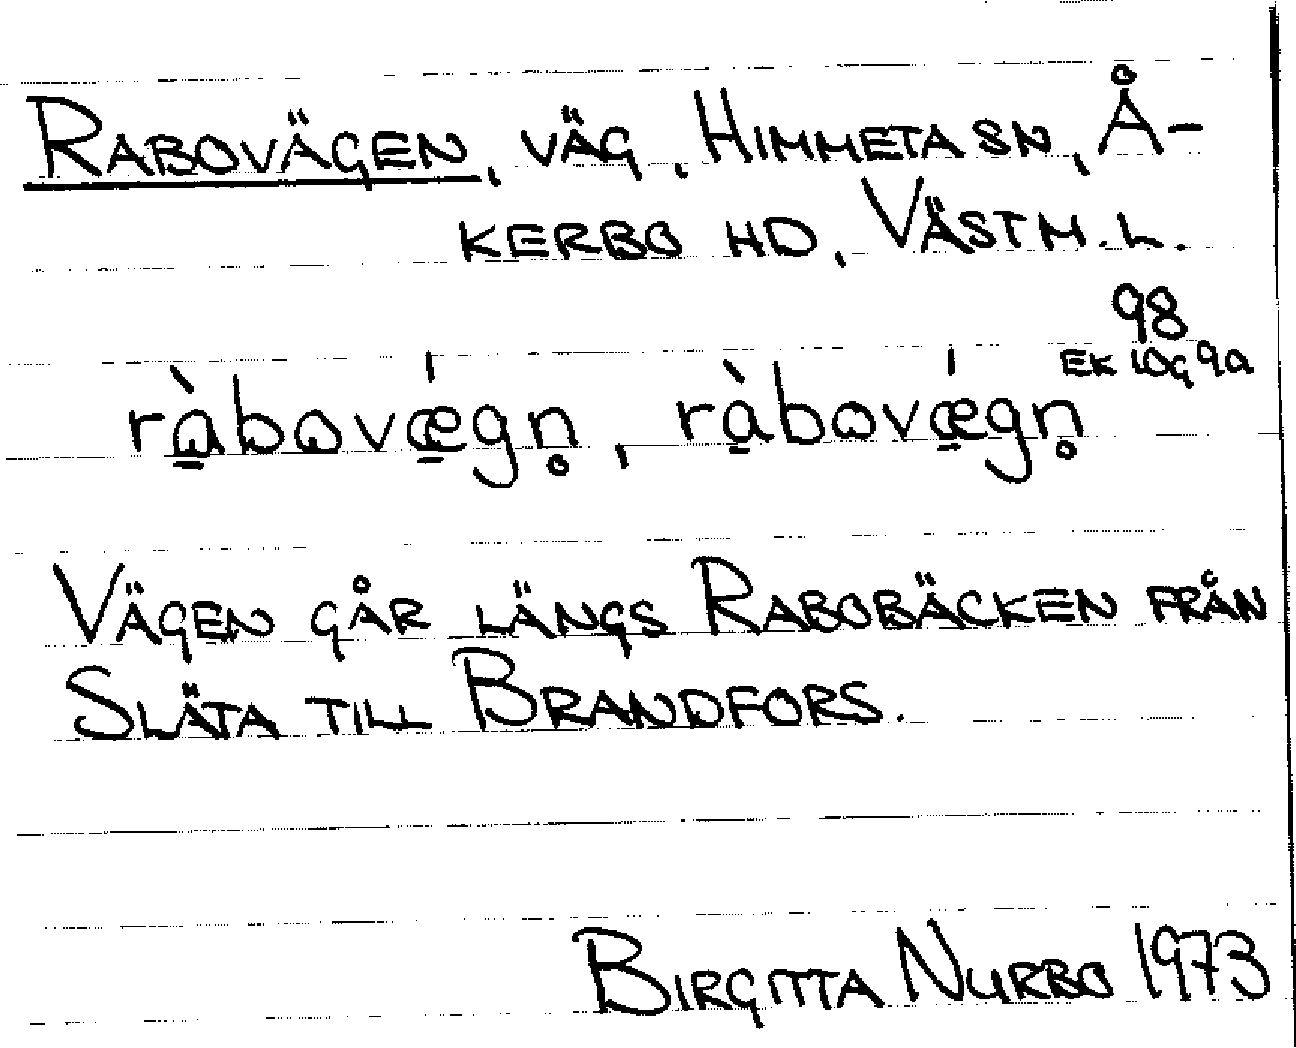 RABOVÄGEN, VÄG, HIMMETA SN, Å-
KERBO HD, VÄSTM. L.
98
EK 10G 9a
ràbovǽgn̥, ràbovǽgn̥
VÄGEN GÅR LÄNGS RABOBÄCKEN FRÅN
SLÄTA TILL BRANDFORS.
BIRGITTA NURBO 1973